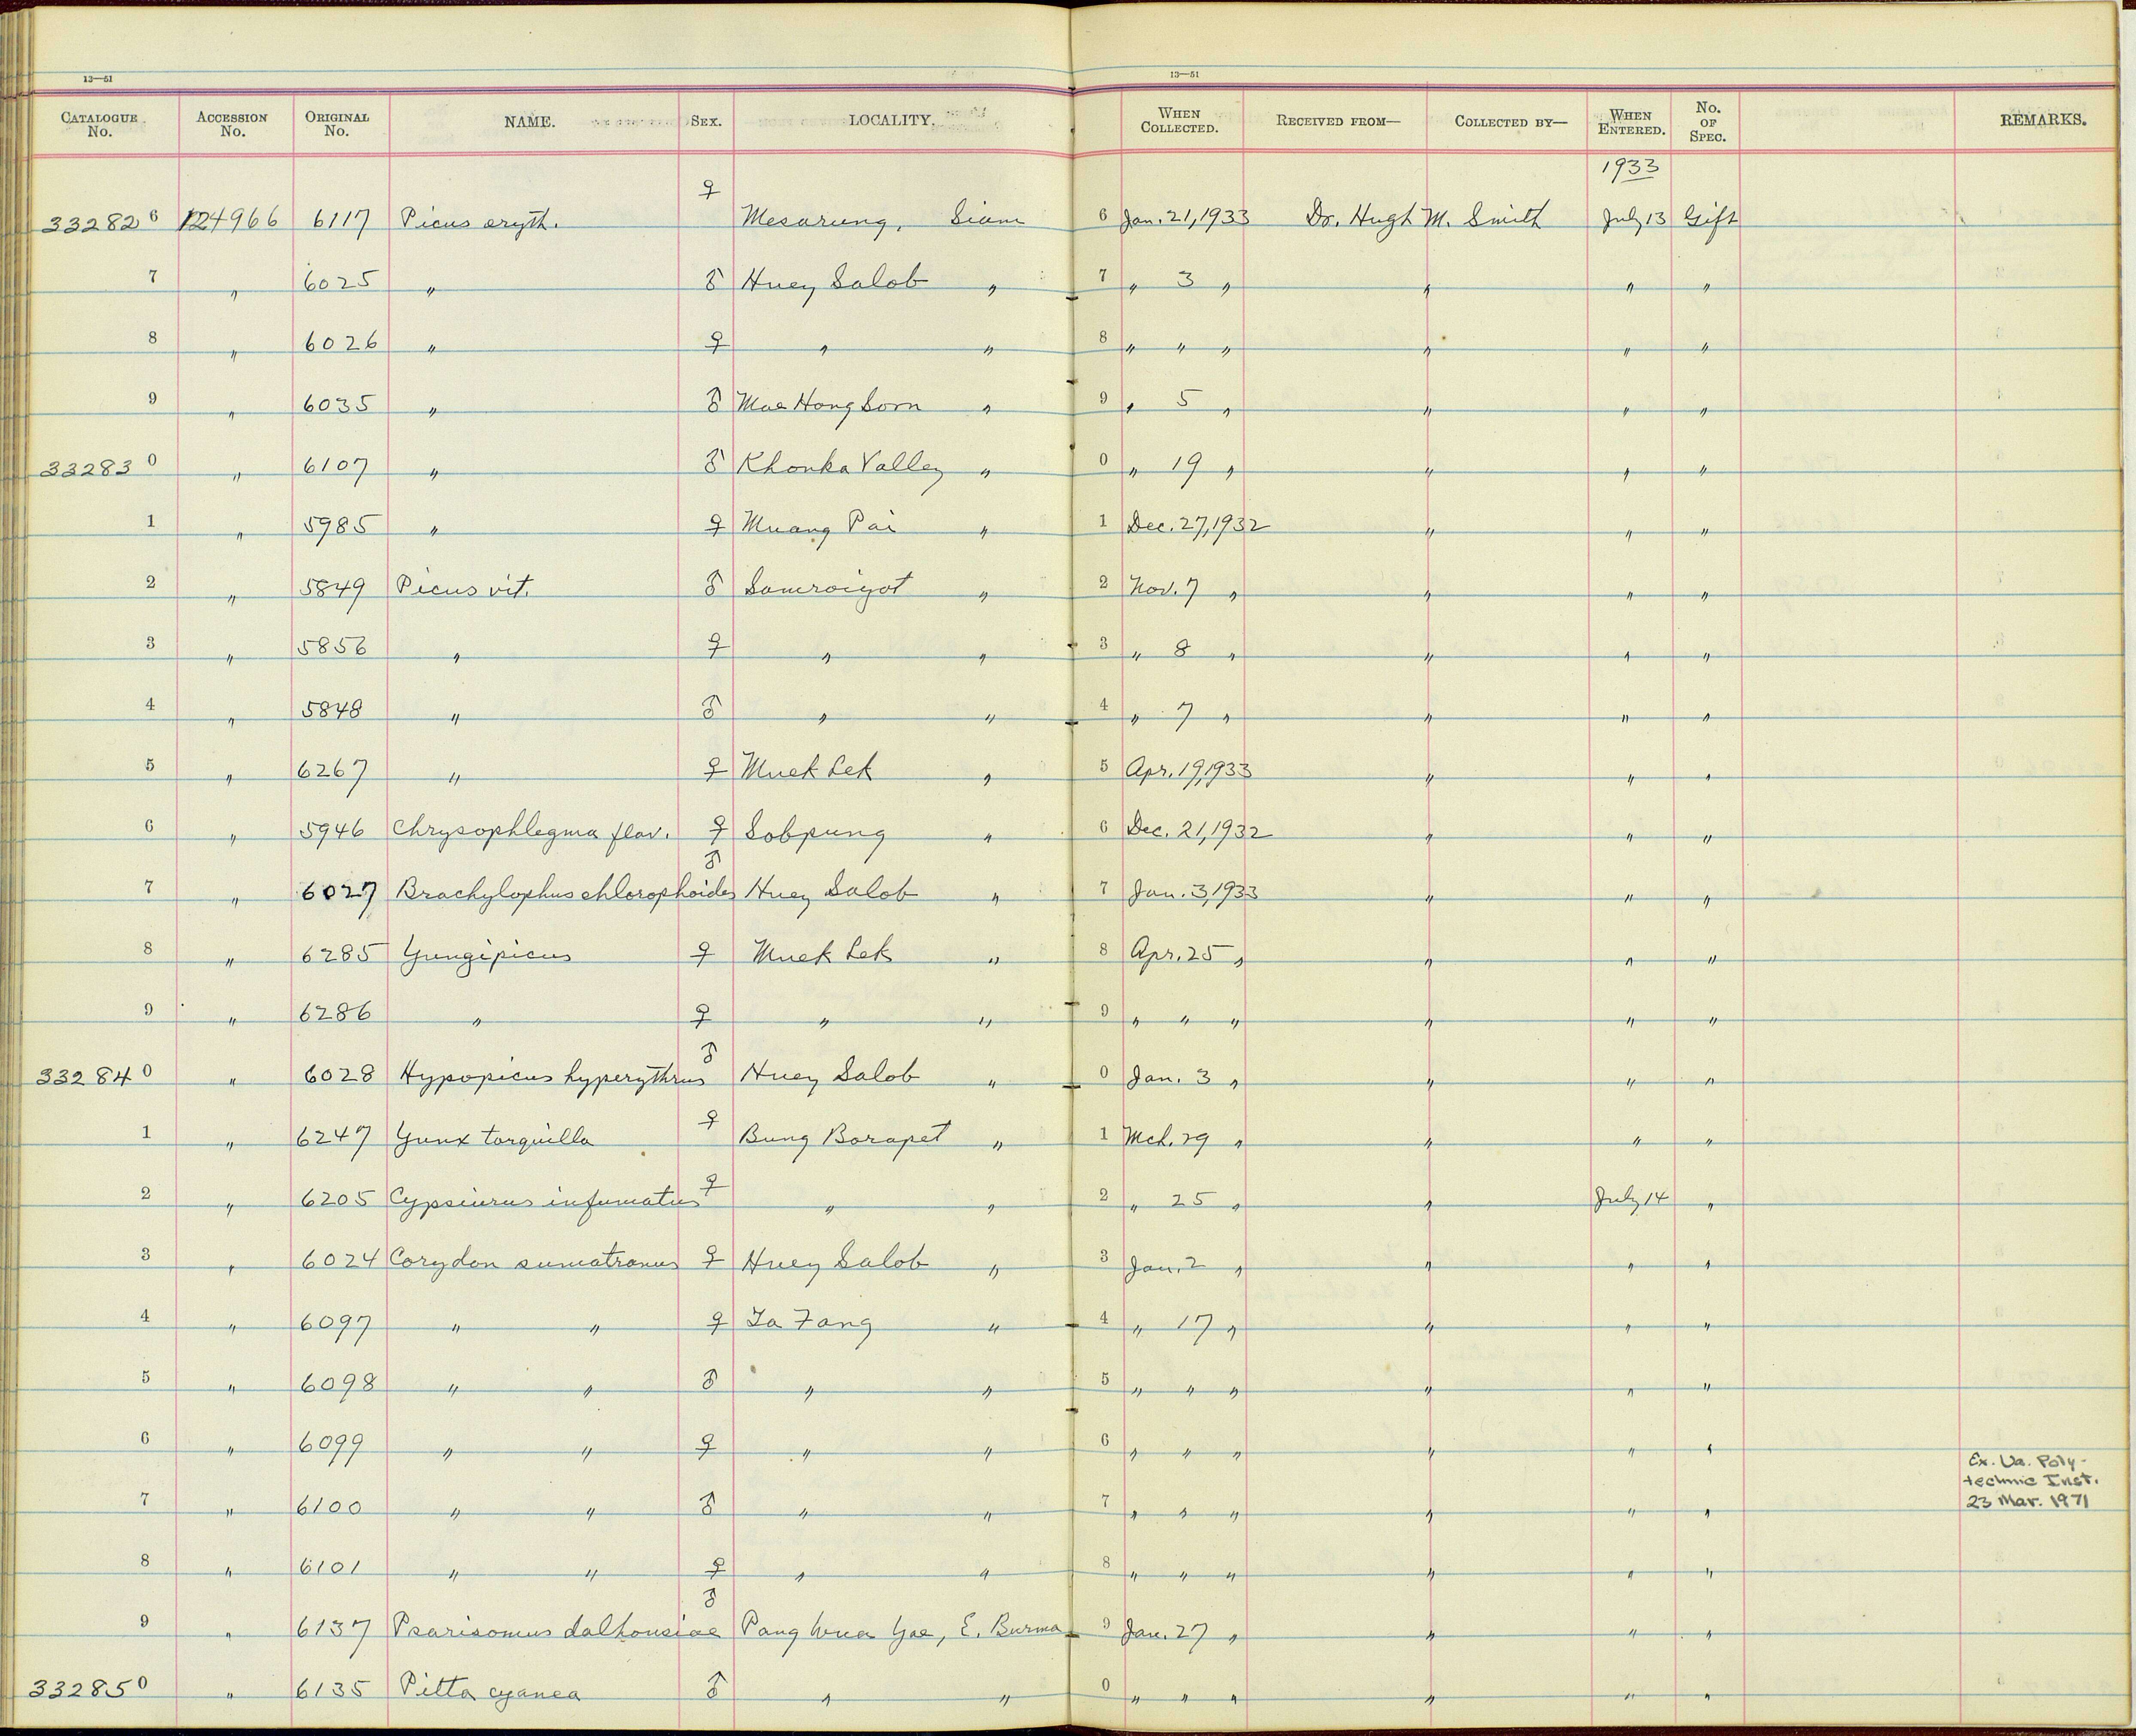 13—51 13—51
CATALOGUE No. ACCESSION No. ORIGINAL No. NAME. SEX. LOCALITY. WHEN COLLECTED. RECEIVED FROM— COLLECTED BY— WHEN ENTERED. No. OF SPEC. REMARKS.
1933
332826 124966 6117 Picus eryth. ♀ Mesarung, Siam 6 Jan. 21, 1933 Dr. Hugh M. Smith July 13 Gift
7 " 6025 " ♂ Huey Salob " 7 " 3 " " " "
8 " 6026 " ♀ " " 8 " " " " " "
9 " 6035 " ♂ Mae Hong Sorn " 9 " 5 " " " "
332830 " 6107 " ♂ Khonka Valley " 0 " 19 " " " "
1 " 5985 " ♀ Muang Pai " 1 Dec. 27, 1932 " " "
2 " 5849 Picus vit. ♂ Samroiyot " 2 Nov. 7 " " " "
3 " 5856 " ♀ " " 3 " 8 " " " "
4 " 5848 " ♂ " " 4 " 7 " " " "
5 " 6267 " ♀ Muek Lek " 5 Apr. 19, 1933 " " "
6 " 5946 Chrysophlegma flav. ♀ Sobpung " 6 Dec. 21, 1932 " " "
7 " 6027 Brachylophus chlorophoides ♂ Huey Salob " 7 Jan. 3, 1933 " " "
8 " 6285 Yungipicus ♀ Muek Lek " 8 Apr. 25 " " " "
9 " 6286 " ♀ " " 9 " " " " " "
332840 " 6028 Hypopicus hyperythrus ♂ Huey Salob " 0 Jan. 3 " " " "
1 " 6247 Yunx torquilla ♀ Bung Borapet " 1 Mch. 29 " " " "
2 " 6205 Cypsiurus infumatus ♀ " " 2 " 25 " " July 14 "
3 " 6024 Corydon sumatranus ♀ Huey Salob " 3 Jan. 2 " " " "
4 " 6097 " " ♀ Ta Fang " 4 " 17 " " " "
5 " 6098 " " ♂ " " 5 " " " " " "
6 " 6099 " " ♀ " " 6 " " " " " "
7 " 6100 " " ♂ " " 7 " " " " " " Ex. Va. Poly-
technic Inst.
23 Mar. 1971
8 " 6101 " " ♀ " " 8 " " " " " "
9 " 6137 Psarisomus dalhousiae ♂ Pang Yae, E. Burma 9 Jan. 27 " " " "
332850 " 6135 Pitta cyanea ♂ " " 0 " " " " " "